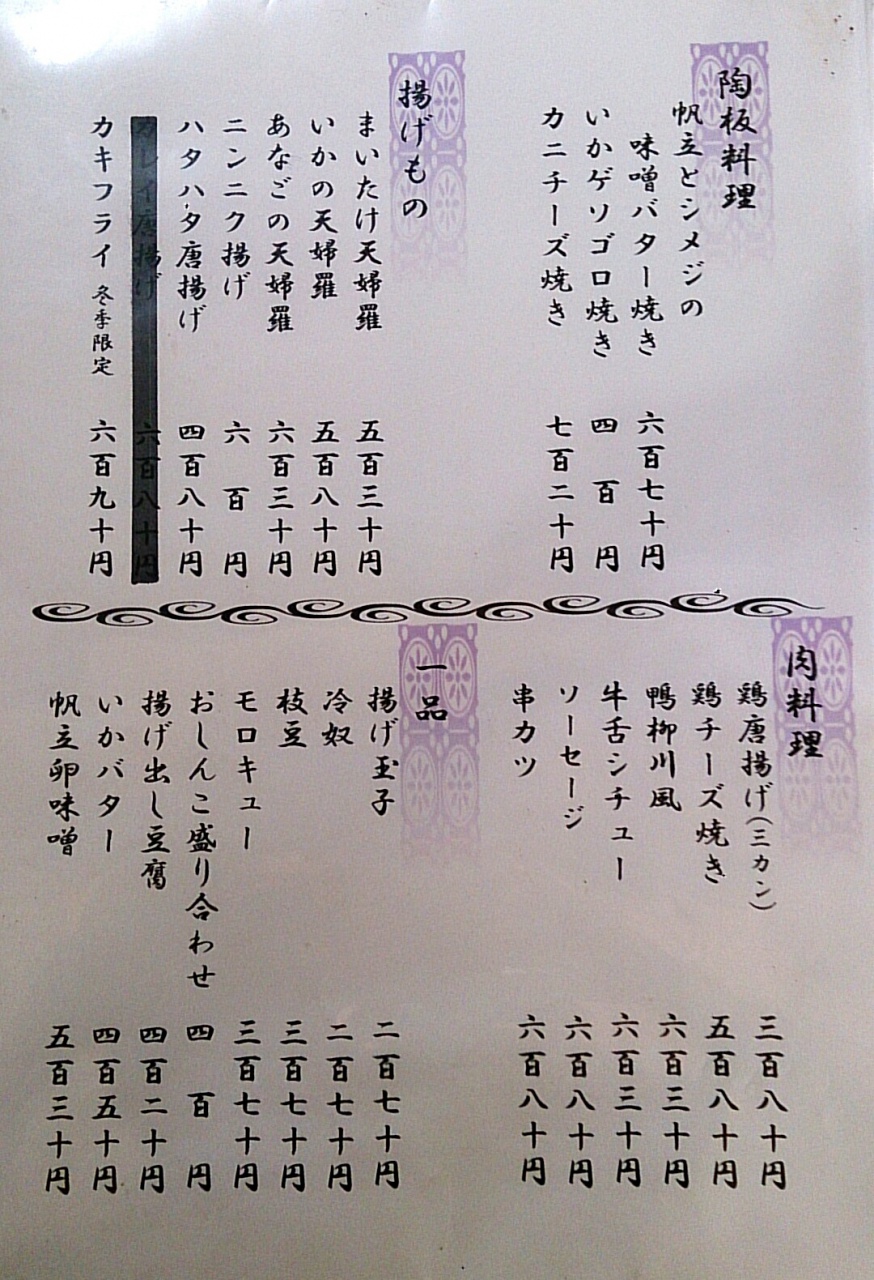 陶板料理
帆立とシメジの
味噌バター焼き 六百七十円
いかゲソゴロ焼き 四百円
カニチーズ焼き 七百二十円
揚げもの
まいたけ天婦羅 五百三十円
いかの天婦羅 五百八十円
あなごの天婦羅 六百三十円
ニンニク揚げ 六百円
ハタハタ唐揚げ 四百八十円
カレイ唐揚げ 六百八十円
カキフライ 冬季限定 六百九十円
肉料理
鶏唐揚げ(三カン) 三百八十円
鶏チーズ焼き 五百八十円
鴨柳川風 六百三十円
牛舌シチュー 六百三十円
ソーセージ 六百八十円
串カツ 六百八十円
一品
揚げ玉子 二百七十円
冷奴 二百七十円
枝豆 三百七十円
モロキュー 三百七十円
おしんこ盛り合わせ 四百円
揚げ出し豆腐 四百二十円
いかバター 四百五十円
帆立卵味噌 五百三十円